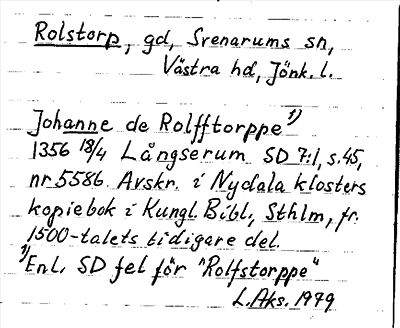 Rolstorp, gd, Svenarums sn,
Västra hd, Jönk. l.
Johanne de Rolfftorppe 1)
1356 18/4 Långserum SD 7:1, s. 45,
nr 5586. Avskr. i Nydala klosters
kopiebok i Kungl. Bibl., Sthlm, fr.
1500-talets tidigare del.
1) Enl. SD fel för "Rolfstorppe"
L. Aks. 1979